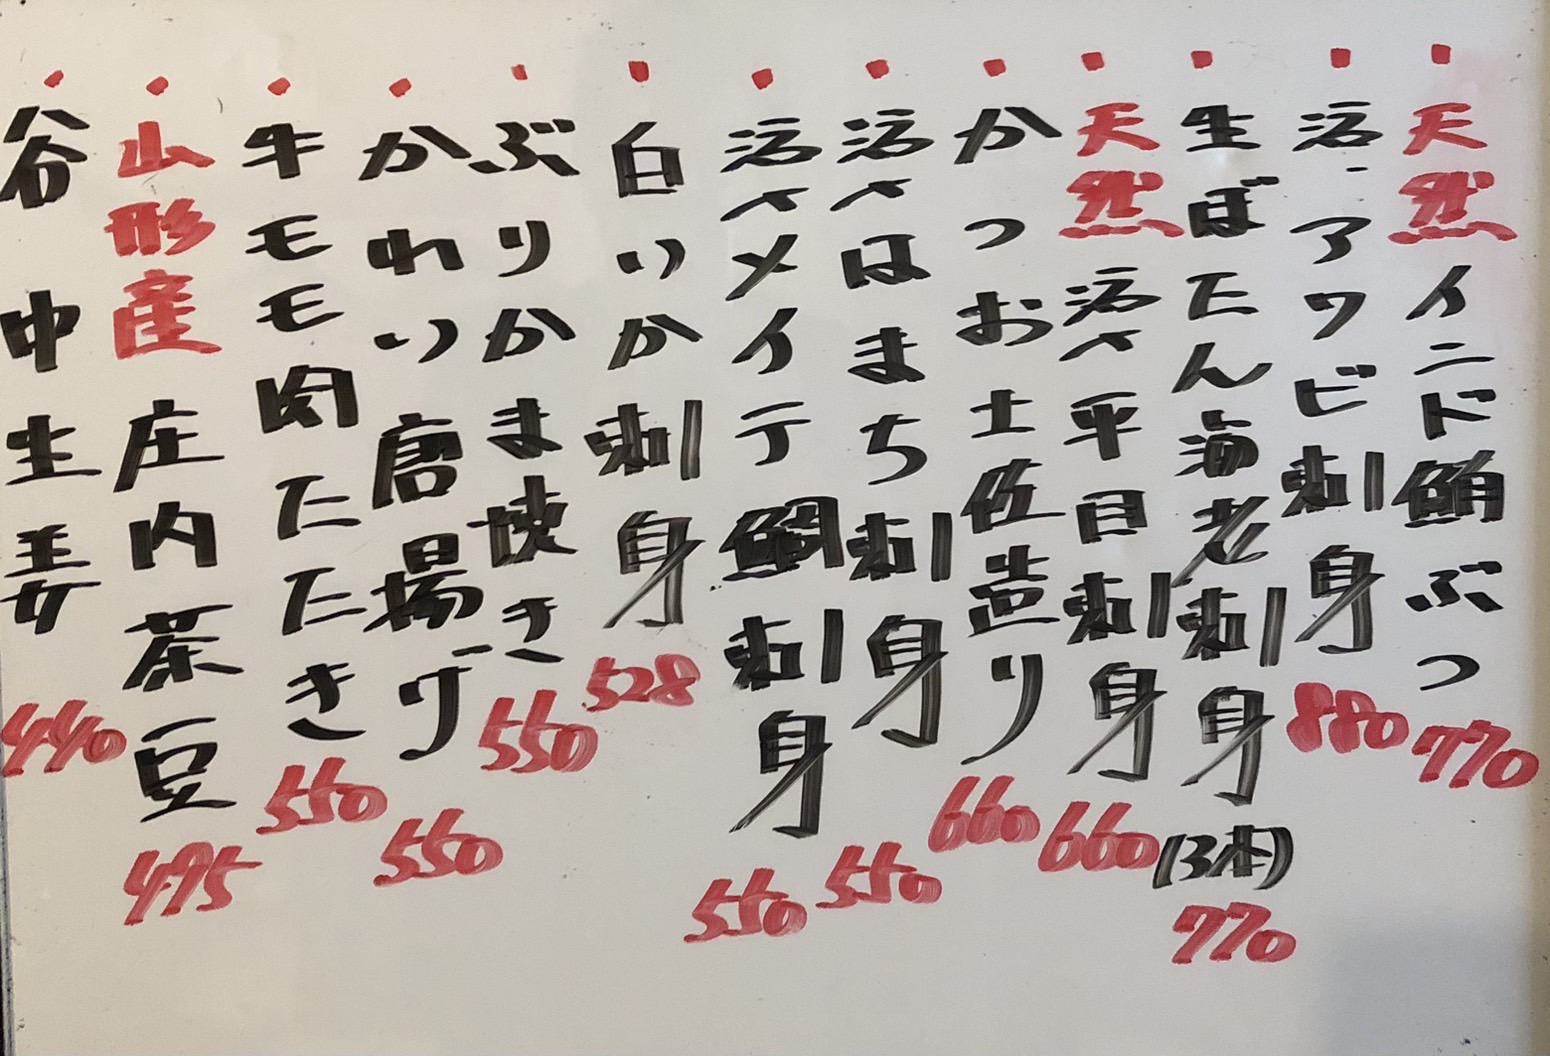 ・天然インド鮪ぶつ 770
・活〆アワビ刺身 880
・生ぼたん海老刺身(3本) 770
・天然活〆平目刺身 660
・かつお土佐造り 660
・活〆はまち刺身 550
・活〆メイチ鯛刺身 550
・白いか刺身 528
・ぶりかま焼き 550
・かれい唐揚げ 550
・牛モモ肉たたき 550
・山形産庄内茶豆 495
・谷中生姜 440